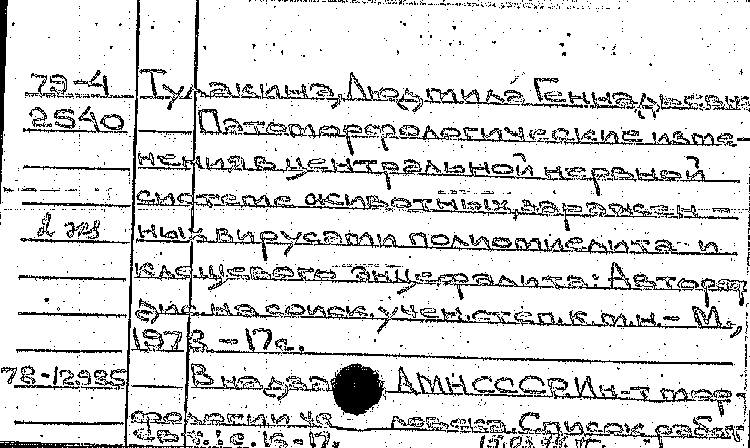 79-4 Тулакина, Людмила Геннадьевна
2540 Патоморфологические изме-
нения в центральной нервной
системе животных, заражен-
2 экз ных вирусами полиомиелита и
клещевого энцефалита: Автореф.
дис. на соиск. учен. степ. к.м.н. - М.,
1978 - 17с.
78-12985 В надзаг АМН СССР. Ин-т мор-
фологии че ловека. Список работ
авт.: с. 16-17.